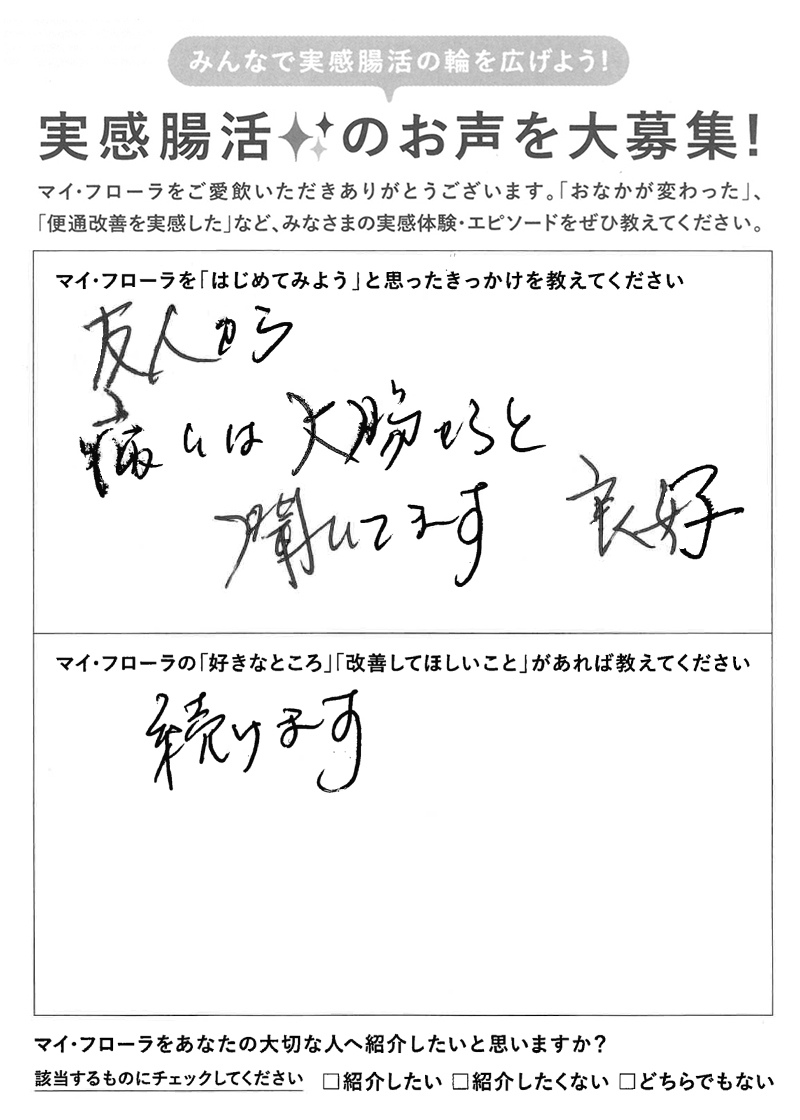 みんなで実感腸活の輪を広げよう!
実感腸活のお声を大募集!
マイ・フローラをご愛飲いただきありがとうございます。「おなかが変わった」、
「便通改善を実感した」など、みなさまの実感体験・エピソードをぜひ教えてください。
マイ・フローラを「はじめてみよう」と思ったきっかけを教えてください
友人から
病いは大腸からと
聞いてます 良好
マイ・フローラの「好きなところ」「改善してほしいこと」があれば教えてください
続けます
マイ・フローラをあなたの大切な人へ紹介したいと思いますか?
該当するものにチェックしてください □紹介したい □紹介したくない □どちらでもない